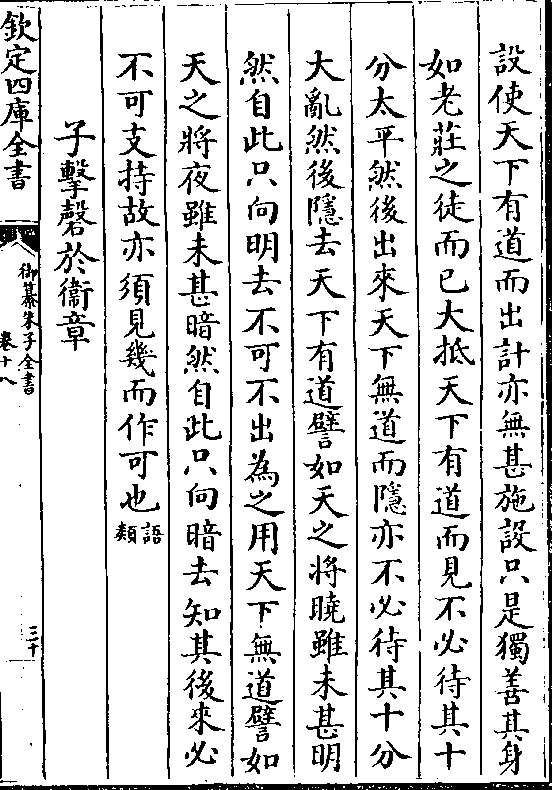 設使天下有道而出計亦無甚施設只是獨善其身
如老莊之徒而已大抵天下有道而見不必待其十
分太平然後出來天下無道而隱亦不必待其十分
大亂然後隱去天下有道譬如天之將曉雖未甚明
然自此只向明去不可不出為之用天下無道譬如
天之將夜雖未甚暗然自此只向暗去知其後來必
不可支持故亦須見幾而作可也語類
子擊磬於衛章
欽定四庫全書
御纂朱子全書
卷十八
三十